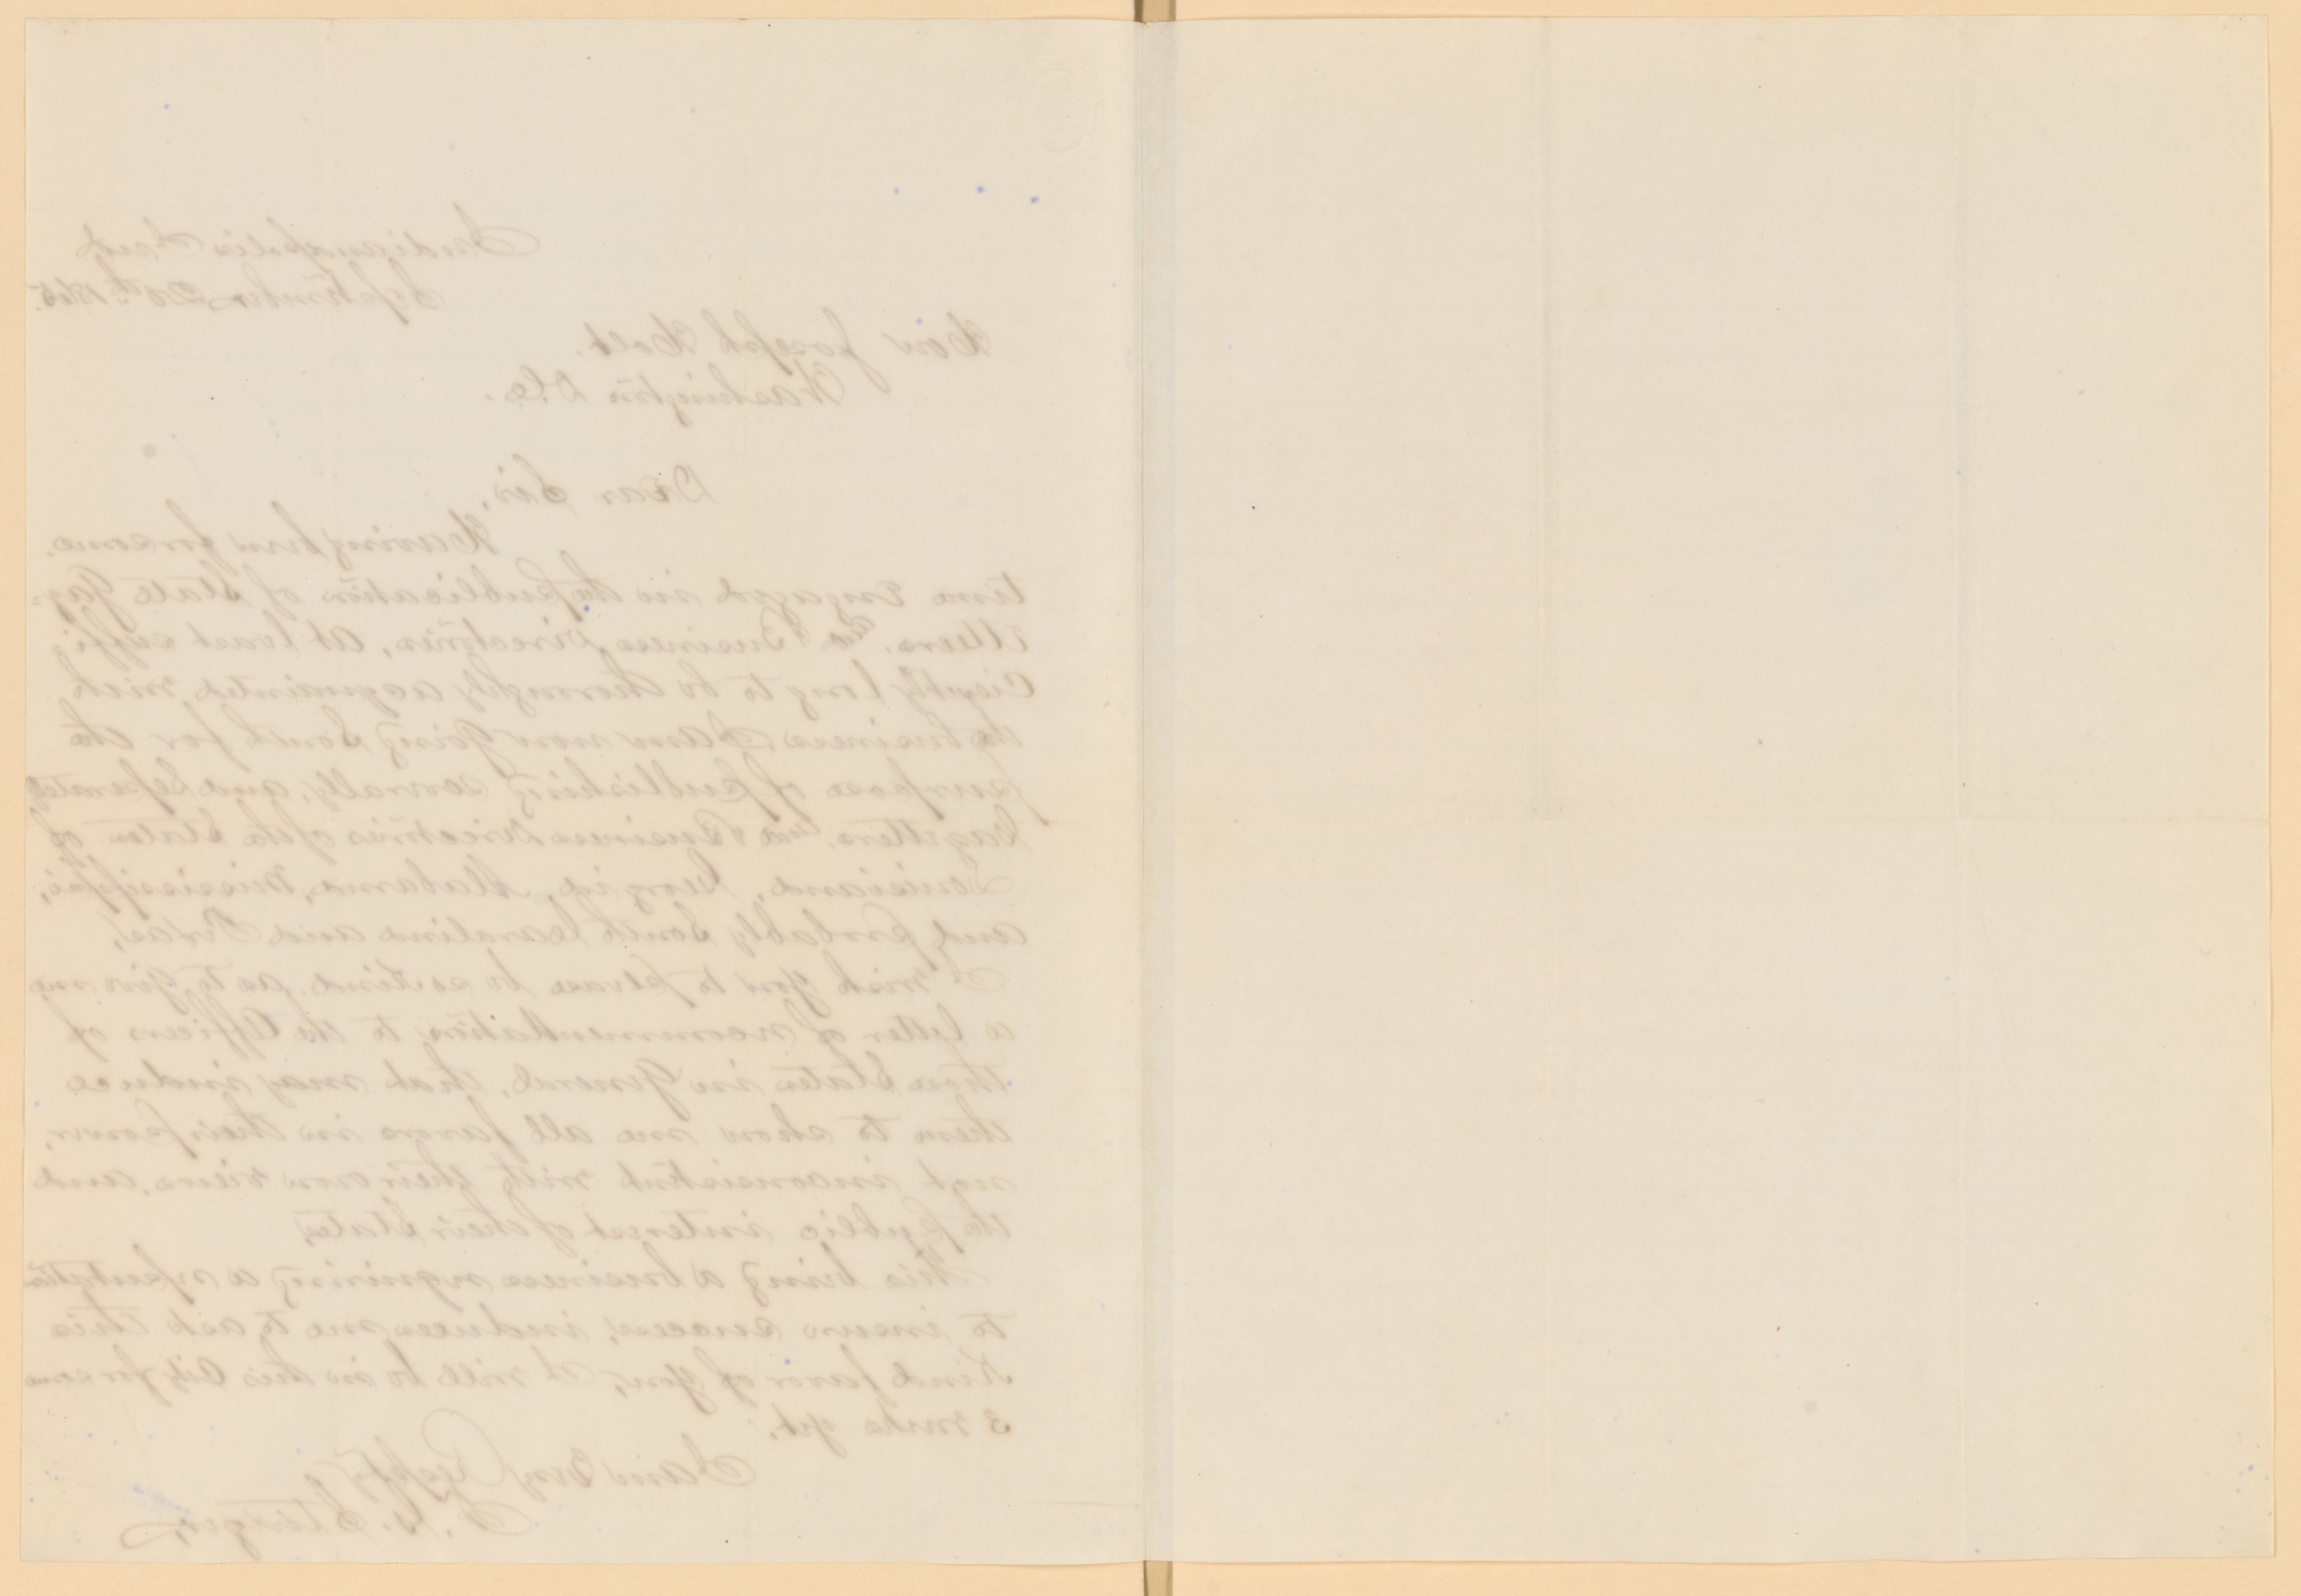 Indianapolis Ind
September 20th 1865.
Hon Joseph Holt.
Washington D.C.
Dear Sir,
Having been for some
time engaged in the publication of State Gaz=
etteers. & Business Directories, at least suffi=
ciently long to be thoroughly acquainted with
the business I am now going South for the
purpose of publishing severally, and seperately
Gazetteers. & Business Directories of the States of
Louisiana, Georgia, Alabama, Mississippi,
and probably South Carolina and Texas,
I wish you to please be so kind as to give me
a letter of recommendation to the Officers of
those States in General, that may induce
them to show me all favors in their power,
not inconsistent with their own views, and
the public interest of their States,
This being a business requiring a reputation
to insure success, induces me to ask this
kind favor of you, I will be in this City for some
3 weeks yet.
I am Very Respfy
F. G. Stidger,